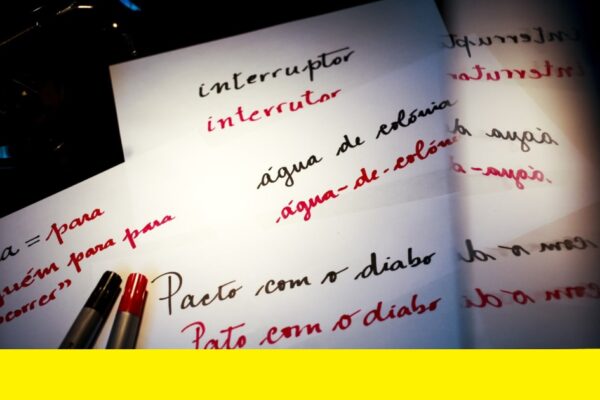 interruptor
interrutor
água de colónia
água-de-colóni
a = para
guém para para
ocorrer"
Pacto com o diabo
Pato com o diabo